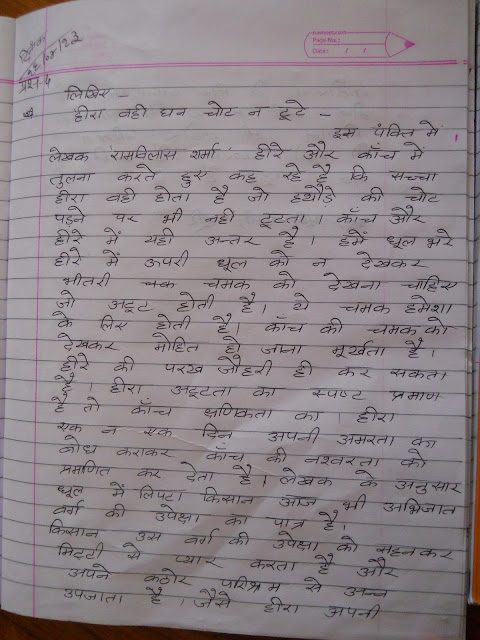 sundaram.com
Page No.:
Date: / /
दिनांक
प्रश्न-4
लिखिए -
'हीरा वही घन चोट न टूटे -
इस पंक्ति में
लेखक 'रामविलास शर्मा' हीरे और काँच में
तुलना करते हुए कह रहे है कि सच्चा
हीरा वही होता है जो हथौड़े की चोट
पड़ने पर भी नही टूटता। काँच और
हीरे में यही अन्तर है। हमें धूल भरे
हीरे में ऊपरी धूल को न देखकर
भीतरी चमक को देखना चाहिए
जो अटूट होती है। ये चमक हमेशा
के लिए होती है। काँच की चमक को
देखकर मोहित हो जाना मूर्खता है।
हीरे की परख जौहरी ही कर सकता
है। हीरा अटूटता का स्पष्ट प्रमाण
है तो काँच क्षणिकता का। हीरा
एक न एक दिन अपनी अमरता का
बोध कराकर काँच की नश्वरता को
प्रमणित कर देता है। लेखक के अनुसार
धूल में लिपटा किसान आज भी अभिजात
वर्ग की उपेक्षा का पात्र है।
किसान उस वर्ग की उपेक्षा को सहनकर
मिट्टी से प्यार करता है और
अपने कठोर परिश्रम से अन्न
उपजाता है। जैसे हीरा अपनी